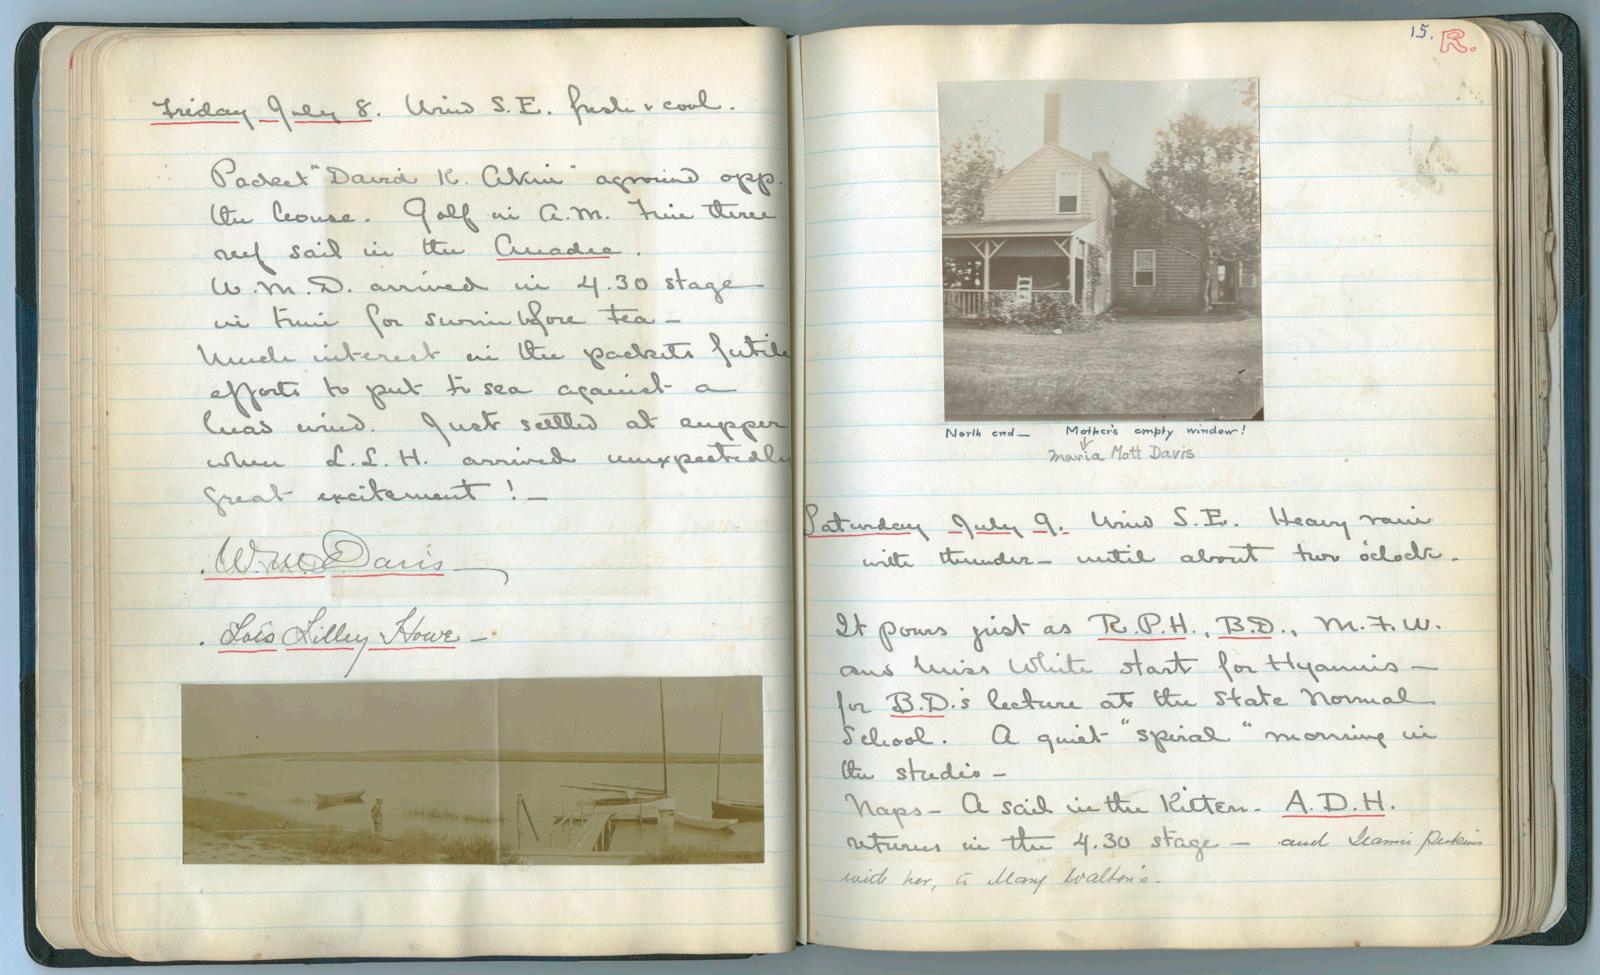 Friday July 8. Wind S.E. fresh & cool.
Packet "David K. Akin" aground opp.
the house. Golf in A.M. Fine three
reef sail in the
W.M.D. arrived in 4.30 stage
in time for swim before tea –
Much interest in the packets futile
efforts to put to sea against a
head wind. Just settled at supper
when L.L.H. arrived unexpectedly
great excitement! –
Wm Davis
Lois Lilley Howe –
15. R.
North end – Mother's empty window!
Maria Mott Davis
Saturday July 9. Wind S.E. Heavy rain
with thunder – until about two o'clock.
It pours just as R.P.H., B.D., M.F.W.
and Miss White start for Hyannis –
for B.D.'s lecture at the State Normal
School. A quiet "spiral" morning in
the studio –
Naps – A sail in the Kitten. A.D.H.
returns in the 4.30 stage – and Perkins
with her, to Mary Walton's.